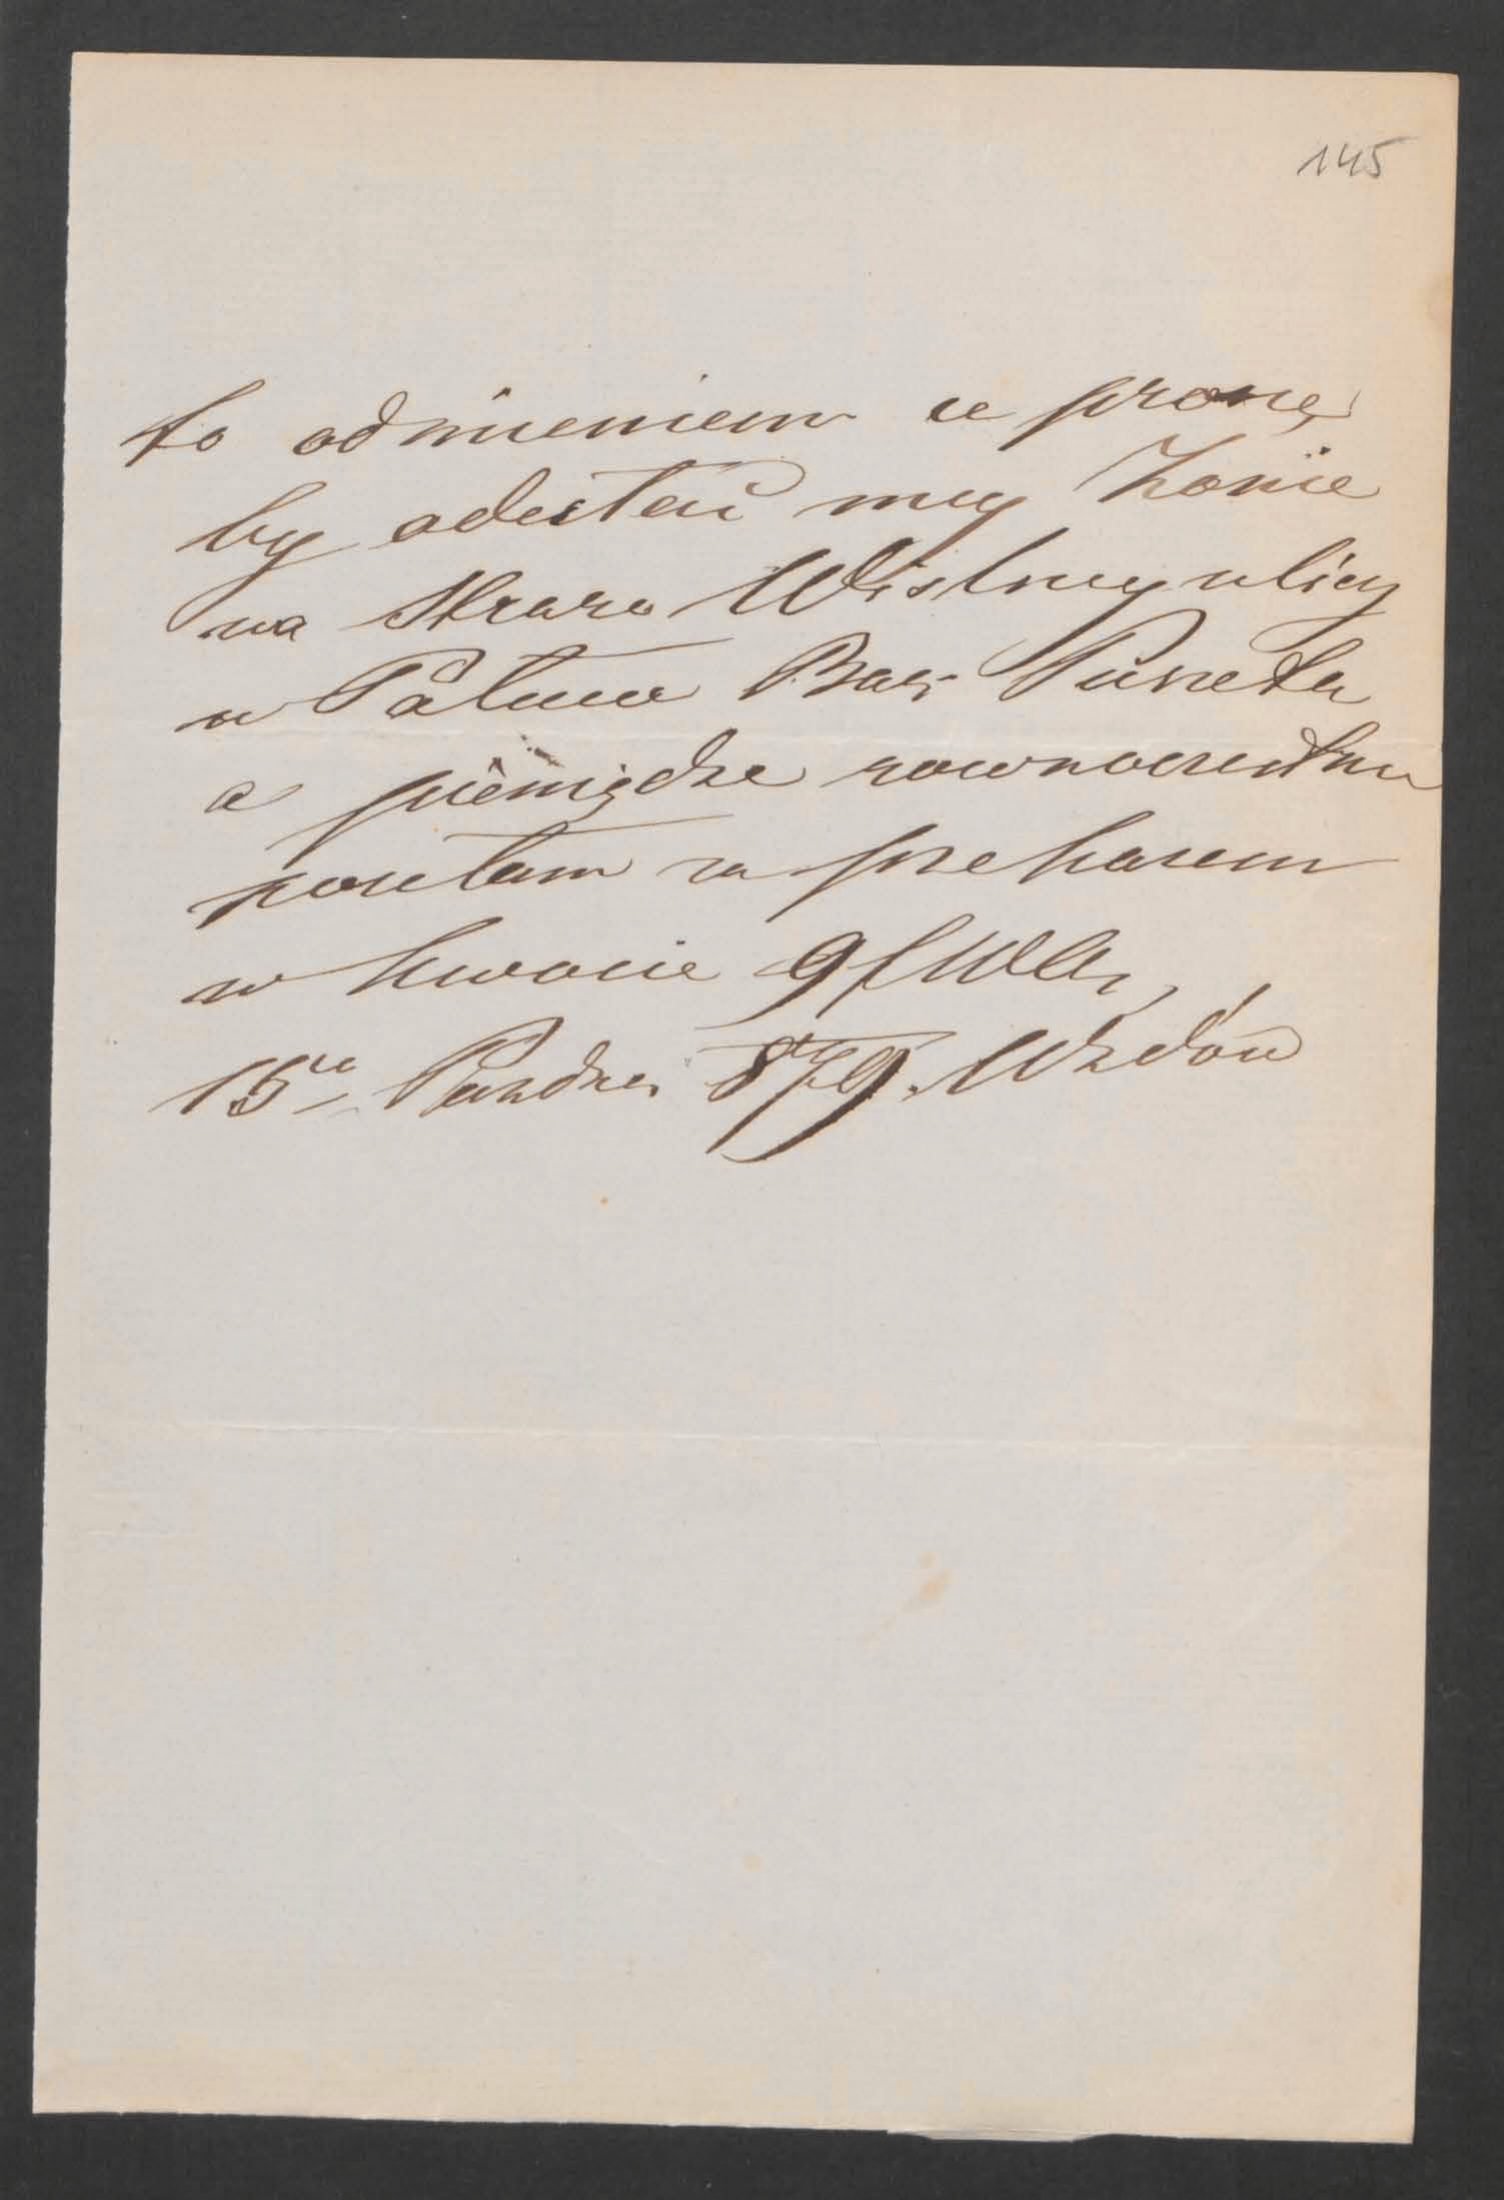 145
to odmieniem a proszę
by odesłać mej Żonie
na Straro Wislnej ulicy
w Pałacu Bar Puszeta
a pieniądze rownocześnie
posełam za przekazem
w kwocie 9 f WA,
15go Paźdzr 879. Wzdów